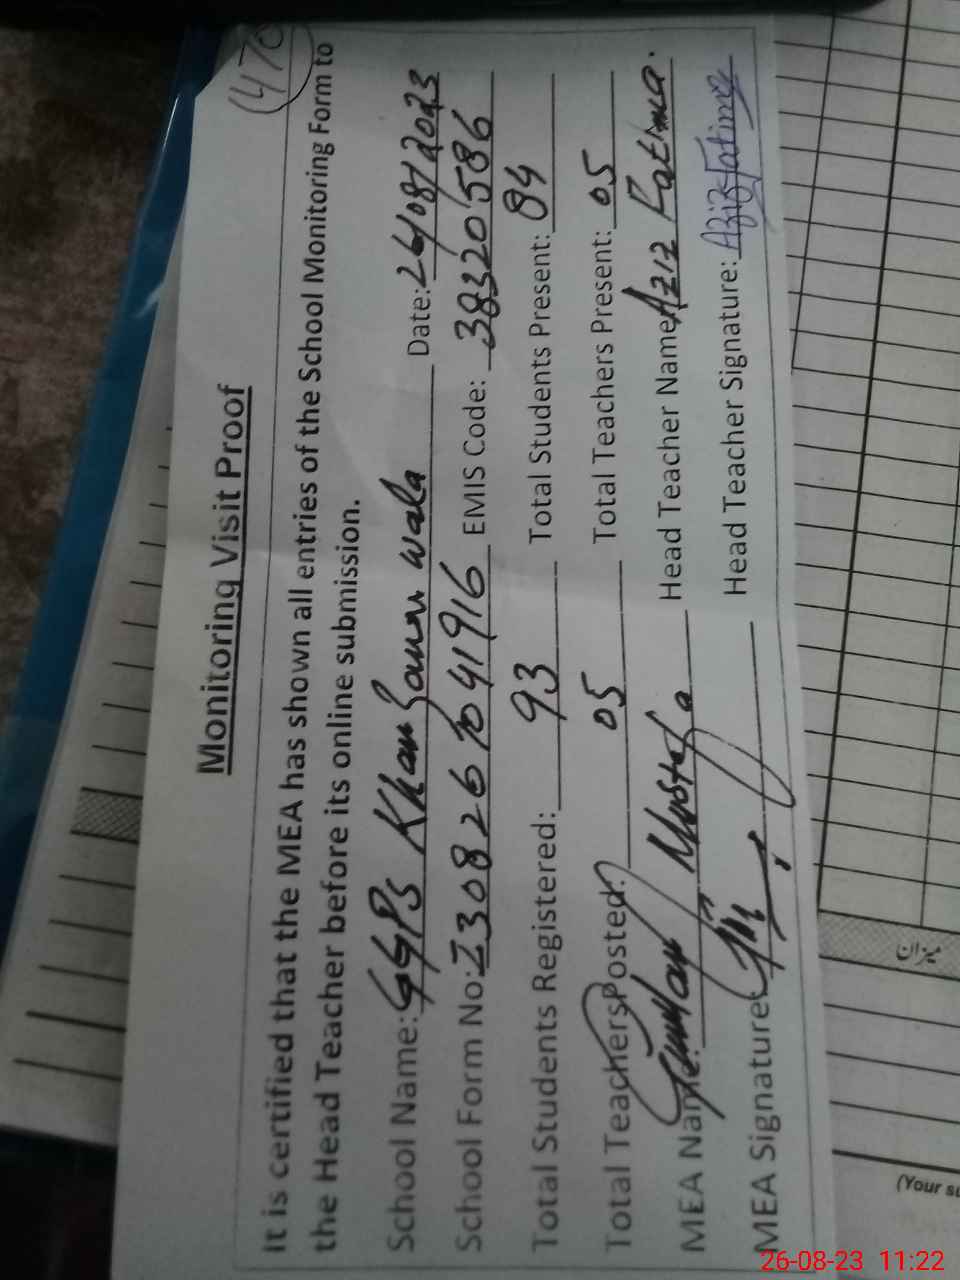 (470
Monitoring Visit Proof
It is certified that the MEA has shown all entries of the School Monitoring Form to
the Head Teacher before its online submission.
School Name: GGPS Khan wala Date: 26/08/2023
School Form No: EMIS Code: 38320586
Total Students Registered: 93 Total Students Present: 84
Total Teachers Posted: 05 Total Teachers Present: 05
MEA Name: Mustafa Head Teacher Name: Aziz Fatima.
MEA Signature: Head Teacher Signature: Aziz Fatima
میزان
(Your su
26-08-23 11:22